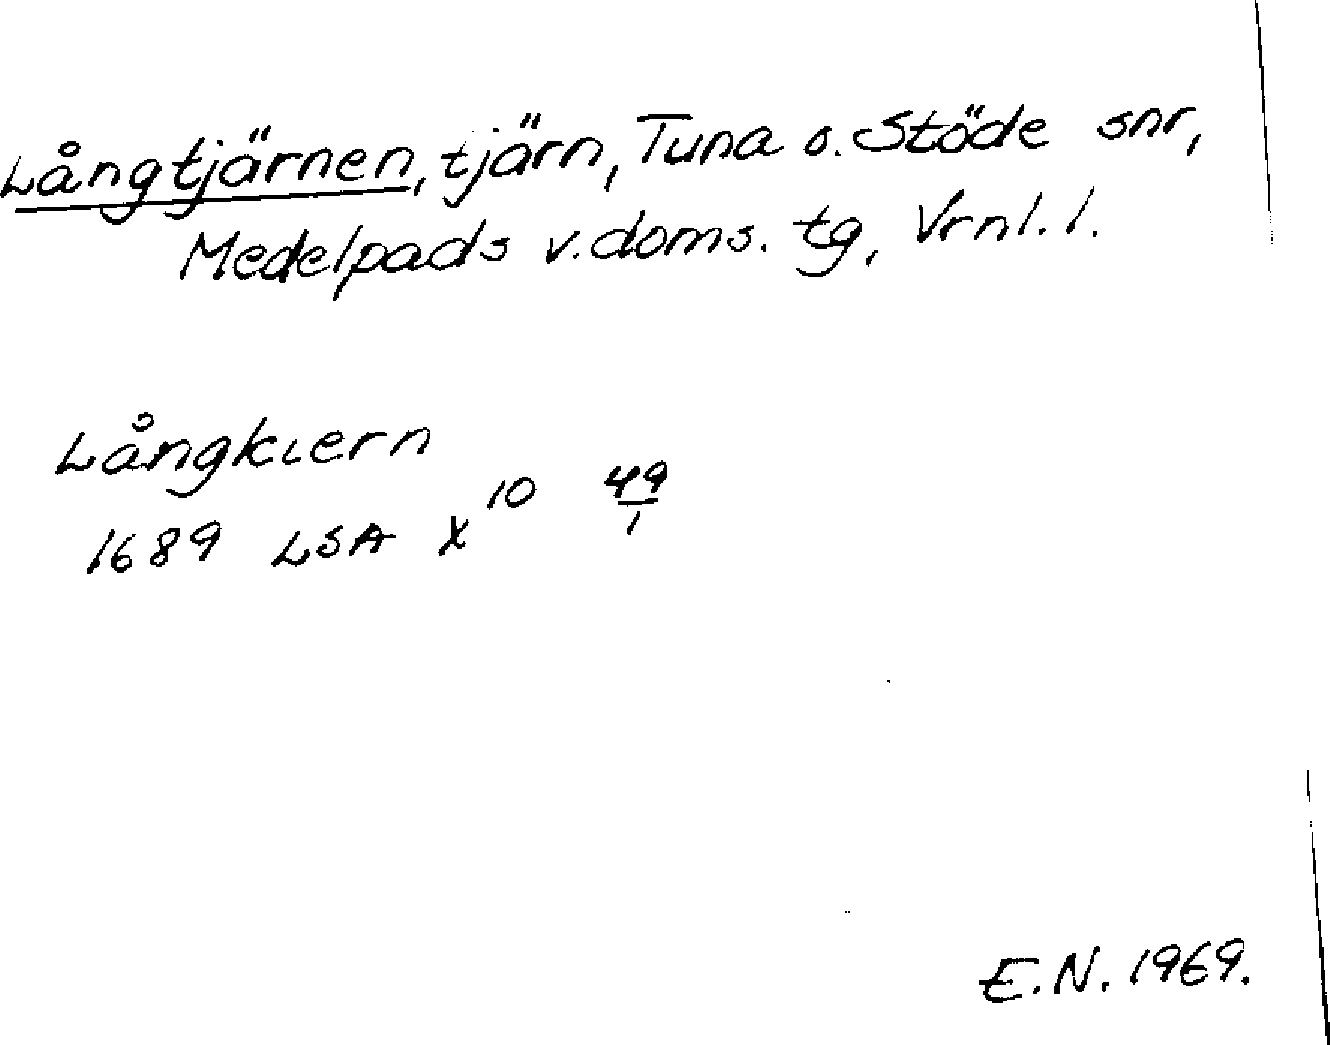 Långtjärnen, tjärn, Tuna o. Stöde snr,
Medelpads v. doms. tg, Vrnl. l.
Långkiern
1689 LSA X 10 49/1
E.N. 1969.